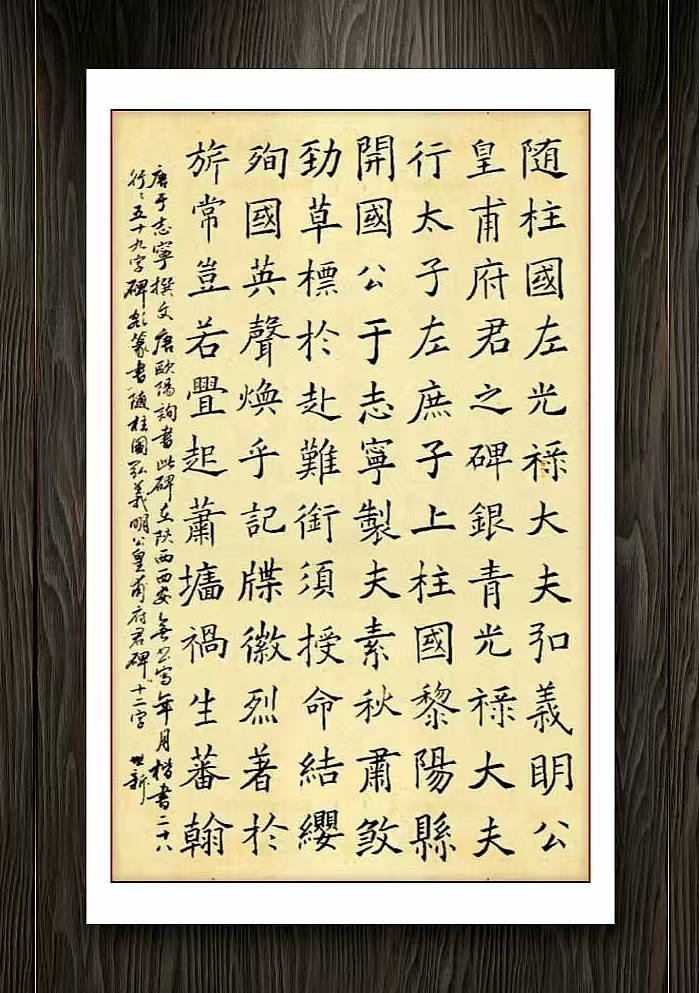 随柱國左光禄大夫弘義明公
皇甫府君之碑銀青光禄大夫
行太子左庶子上柱國黎陽縣
開國公于志寧製夫素秋肅煞
勁草標於赴難銜須授命結纓
殉國英聲煥乎記牒徽烈著於
旂常豈若舋起蕭墻禍生蕃翰
唐于志寧撰文唐歐陽詢書此碑在陕西西安無寫年月楷書二十八
行〻五十九字碑额篆書随柱國弘義明公皇甫府君碑十二字 世新